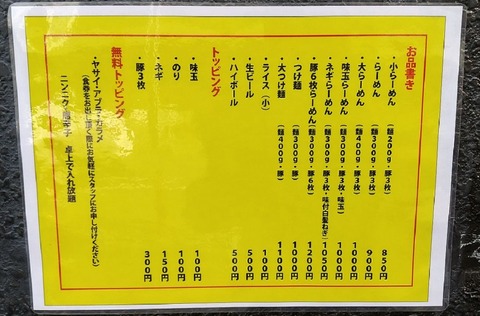 お品書き
・小らーめん（麺200g・豚3枚） 850円
・らーめん（麺300g・豚3枚） 900円
・大らーめん（麺400g・豚3枚） 1000円
・味玉らーめん（麺300g・豚3枚・味玉） 1000円
・ネギらーめん（麺300g・豚3枚・味付白髪ねぎ） 1050円
・豚6枚らーめん（麺300g・豚6枚） 1200円
・つけ麺（麺300g・豚） 1000円
・大つけ麺（麺400g・豚） 1100円
・ライス（小） 100円
・生ビール 500円
・ハイボール 500円
トッピング
・味玉 100円
・のり 100円
・ネギ 150円
・豚3枚 300円
無料トッピング
・ヤサイ・アブラ・カラメ
（食券をお出し頂く際にお気軽にスタッフにお申し付けください）
ニンニク・唐辛子 卓上で入れ放題